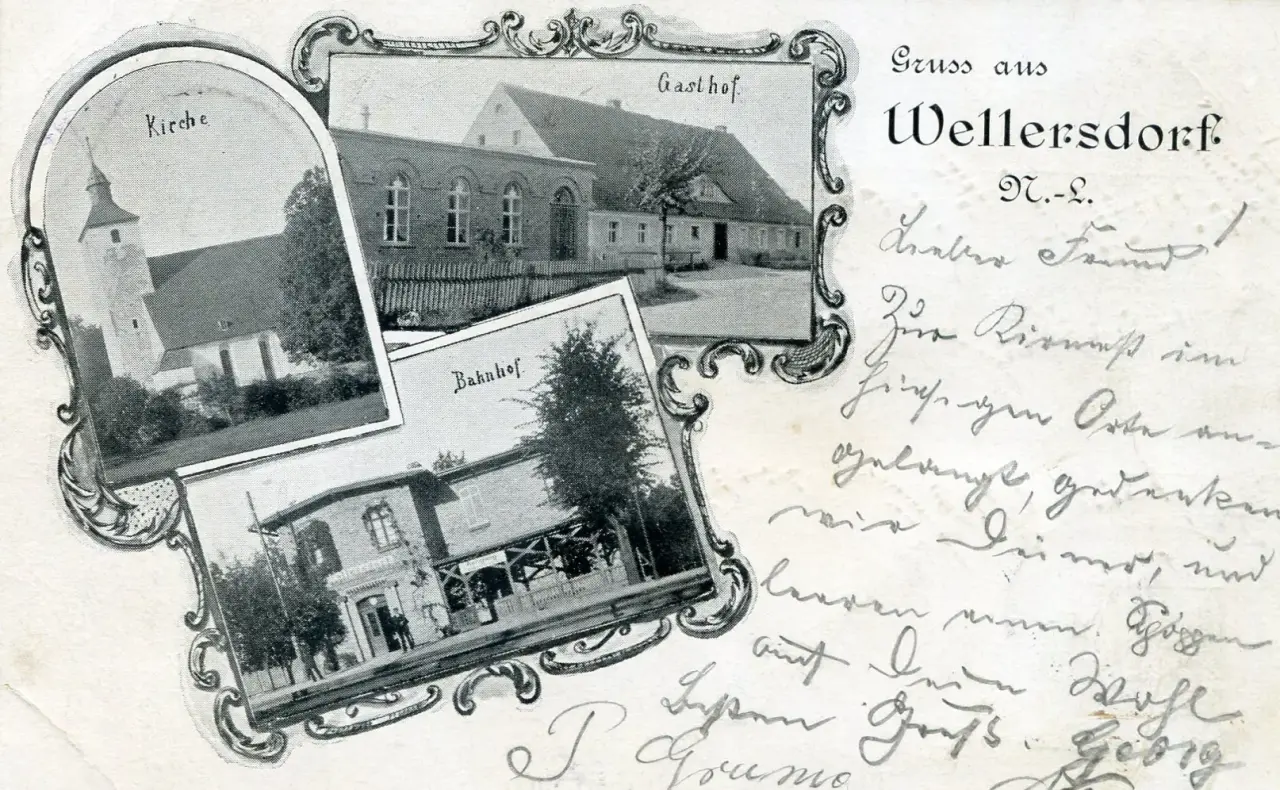 Kirche
Gasthof.
Bahnhof.
Gruss aus
Wellersdorf
N.-L.
Lieber Freund!
Zur Kirmeß im
hiesigen Orte an-
gelangt, gedenken
wir Deiner, und
leeren einen Schoppen
auf Dein Wohl
Besten Gruß. Georg
P.